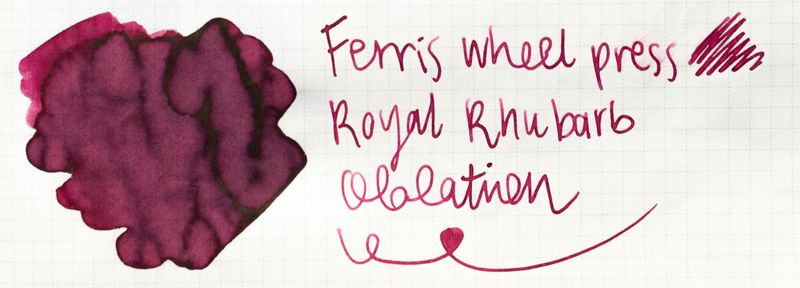 Ferris wheel press
Royal Rhubarb